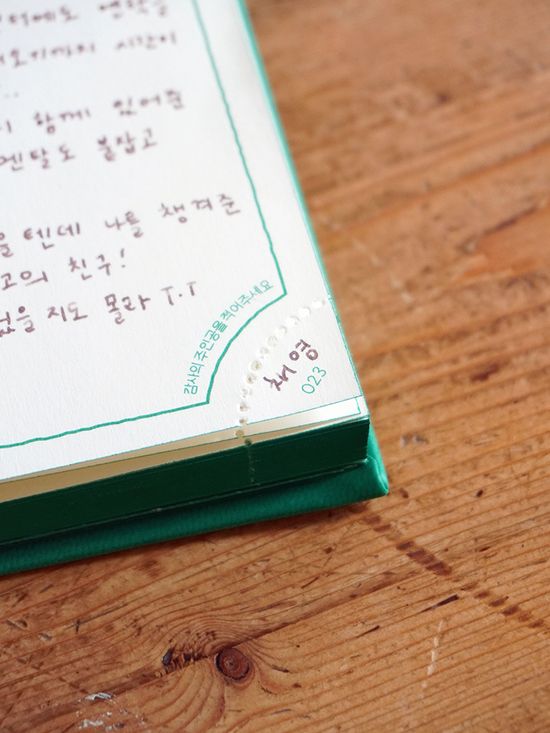 연락을
오기까지 시간이
..
함께 있어준
멘탈도 붙잡고
텐데 나를 챙겨준
고의 친구!
었을지도 몰라 T.T
감사의 주인공을 적어주세요
채영
023